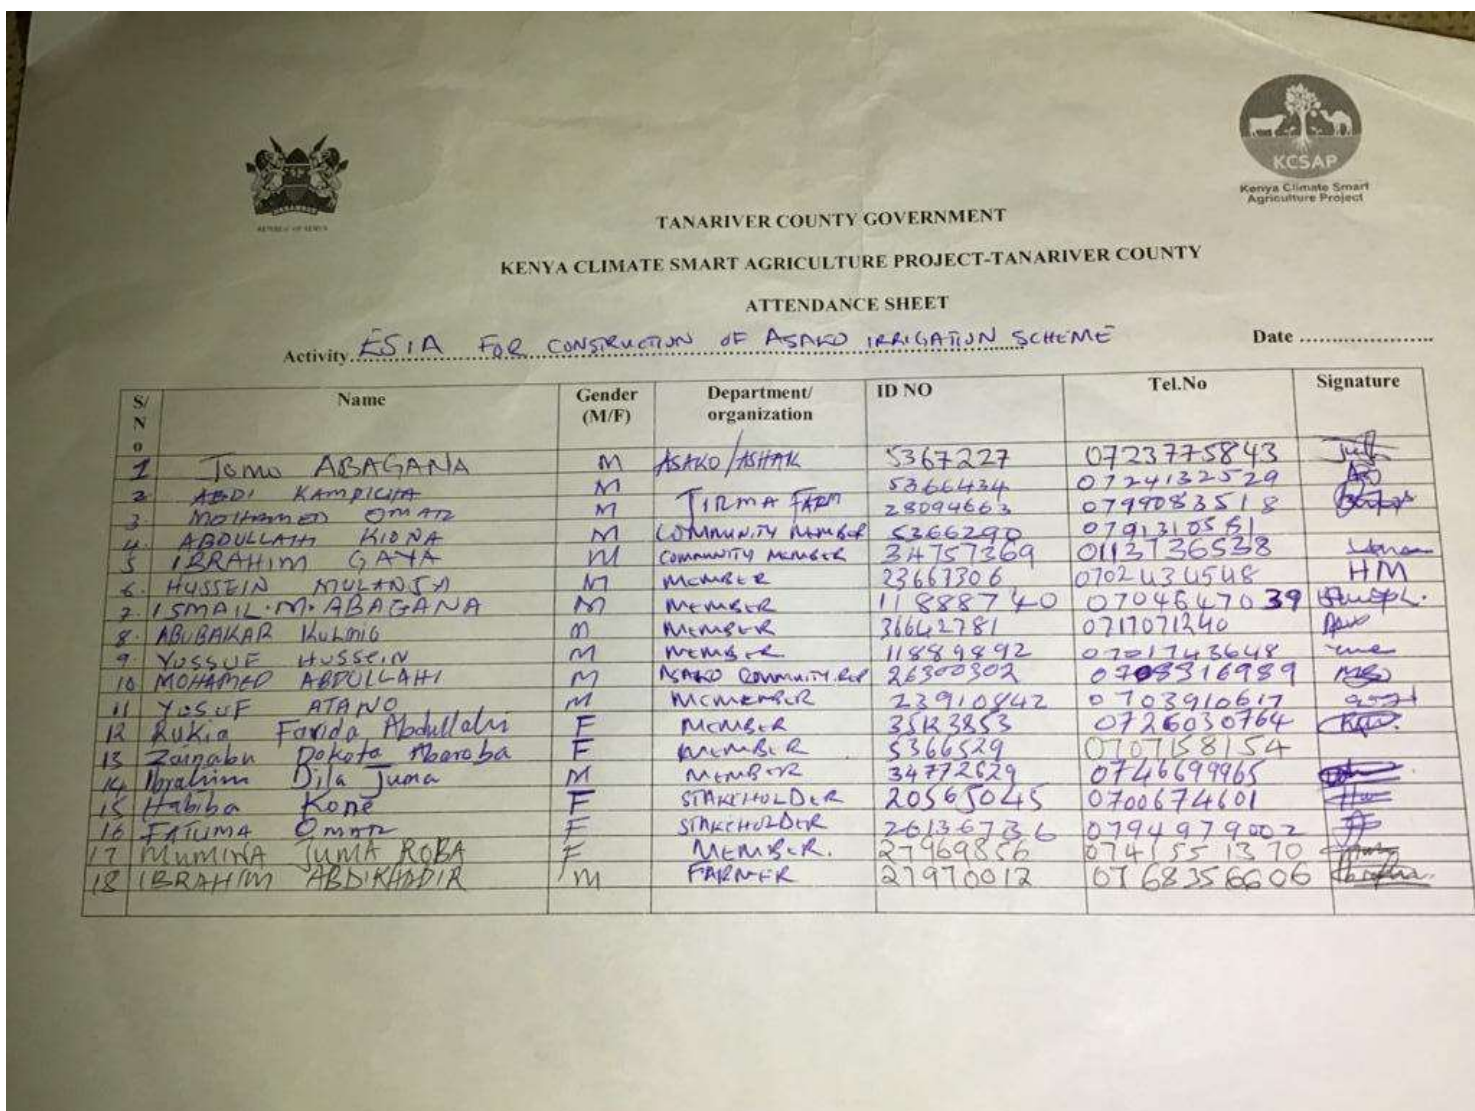 REPUBLIC OF KENYA
KCSAP
Kenya Climate Smart
Agriculture Project
TANARIVER COUNTY GOVERNMENT
KENYA CLIMATE SMART AGRICULTURE PROJECT-TANARIVER COUNTY
ATTENDANCE SHEET
Activity ESIA FOR CONSTRUCTION OF ASAKO IRRIGATION SCHEME Date
S/No Name Gender (M/F) Department/organization ID NO Tel.No Signature
1 Jomo ABAGANA M ASAKO/ASHAK 5367227 0723775843
2 ABDI KAMPICHA M 5366434 0724132529
3. MOHAMED OMAR M TIRMA FARM 28094663 0799083518
4. ABDULLAHI KIONA M COMMUNITY MEMBER 5366290 0791310581
5 IBRAHIM GAYA M COMMUNITY MEMBER 34757369 0113736538
6. HUSSEIN M MEMBER 23661306 0702434548 HM
7. ISMAIL.M.ABAGANA M MEMBER 11888740 0704647039
8. ABUBAKAR M MEMBER 36642781 0717071240
9. YUSSUF HUSSEIN M MEMBER 11889892 0701743648
10 MOHAMED ABDULLAHI M ASAKO COMMUNITY REP 26300302 0708316989
11 YUSUF ATANO M MCMEMBER 23910842 0703910617
12 Rukia Farida Abdullahi F MEMBER 35123853 0726030764
13 Zainabu Dokota F MEMBER 5366529 0707158154
14 Ibrahim Dila Juma M MEMBER 34772629 0746699965
15 Habiba Kone F STAKEHOLDER 20565045 0700674601
16 FATUMA OMAR F STAKEHOLDER 26136736 0794979002
17 MUMINA JUMA ROBA F MEMBER. 27969856 0741551370
18 IBRAHIM ABDIKHADIR M FARMER 27970012 0768356606